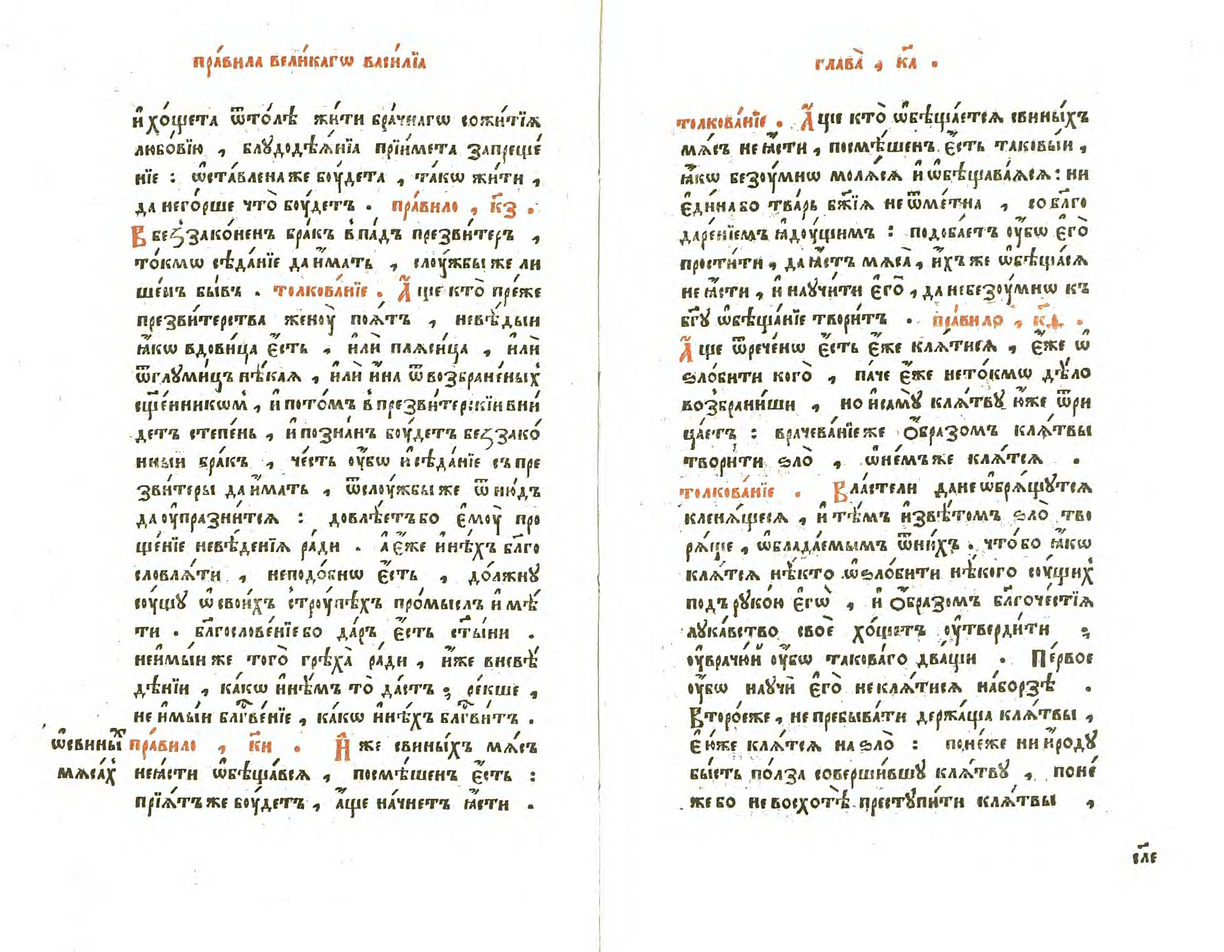 пра́вила вели́кагѡ васи́лїа
и҆ хо́щета ѿто́лѣ жи́ти бра́чнагѡ сожи́тїѧ
любо́вїю , блꙋдодѣѧ́нїѧ прїи́мета запреще́
нїе : ѡ҆ста́вленаже бꙋ́дета , та́кѡ жи́ти ,
да него́рше что̀ бꙋ́детъ . пра́вило , к҃з .
В беꙁзако́ненъ бра́къ впа́дъ презви́теръ ,
то́кмѡ сѣда́нїе да и҆́мать , слꙋ́жбы же ли
ше́нъ бы́въ . толкова́нїе . А҆́ще кто̀ пре́же
презви́терства женꙋ̀ поѧ́тъ , невѣ́дыи
ꙗ҆́кѡ вдови́ца є҆́сть , и҆лѝ плѧси́ца , и҆лѝ
ѿглꙋми́цъ нѣ́каѧ , и҆лѝ и҆́на ѿ возбране́ныхъ
сщ҃е́нникомъ , и҆ пото́мъ в презви́терскїи вни́
детъ степе́нь , и҆ позна́нъ бꙋ́детъ беꙁзако́
нныи бра́къ , че́сть ᲂу҆́бѡ и҆ сѣда́нїе съ пре
зви́теры да и҆́мать , ѿслꙋ́жбы же ѿню́дъ
да ᲂу҆праздни́тсѧ : довлѣ́етъ бо є҆мꙋ̀ про
ще́нїе невѣ́денїѧ ра́ди . а҆ є҆́же и҆нѣ́хъ бл҃го
словлѧ́ти , неподо́бнѡ є҆́сть , до́лжнꙋ
сꙋ́щꙋ ѡ҆ свои́хъ стрꙋ́пѣхъ про́мыслъ и҆мѣ́
ти . бл҃гослове́нїе бо да́ръ є҆́сть ст҃ы́ни .
неи҆мы́и же того̀ грѣха̀ ра́ди , и҆́же в невѣ́
дѣнїи , ка́кѡ и҆нѣ́мъ то̀ да́стъ ; ре́кше ,
не и҆мы́и бл҃гве́нїе , ка́кѡ и҆нѣ́хъ бл҃гви́тъ .
ѡ҆ свины́хъ
мѧсѣ́хъ
пра́вило , к҃и . И҆́же свины́хъ мѧ́съ
неꙗ҆́сти ѡ҆бѣща́всѧ , посмѣ́шенъ є҆́сть :
прїѧ́тъ же бꙋ́детъ , а҆́ще на́чнетъ ꙗ҆́сти .
глава̀ , к҃а .
толкова́нїе . А҆́ще кто̀ ѡ҆бѣща́етсѧ свины́хъ
мѧ́съ не ꙗ҆́сти , посмѣ́шенъ є҆́сть таковы́и ,
ꙗ҆́кѡ безꙋ́мнѡ молѧ́сѧ и҆ ѡ҆бѣщава́ѧсѧ : ни
є҆ди́на бо тва́рь бж҃їѧ не ѿме́тна , со бл҃го
даре́нїемъ ꙗ҆дꙋ́щимъ : подоба́етъ ᲂу҆́бѡ є҆го̀
прости́ти , да ꙗ҆́стъ мѧса̀ , и҆́хъ же ѡ҆бѣща́сѧ
не ꙗ҆́сти , и҆ наꙋчи́ти є҆го̀ , да небезꙋ́мнѡ къ
бг҃ꙋ ѡ҆бѣща́нїе твори́тъ . пра́вило , к҃ѳ .
А҆́ще ѿрече́нѡ є҆́сть є҆́же клѧ́тисѧ , є҆́же ѡ҆
ѕло́бити кого̀ , па́че є҆́же нето́кмѡ дѣ́ло
возбрани́ши , но и҆ самꙋ̀ клѧ́твꙋ ю҆́же ѿри
ца́етъ : врачева́нїе же ѻ҆́бразомъ клѧ́твы
твори́ти ѕло̀ , ѡ҆ не́мъ же клѧ́тсѧ .
толкова́нїе . Вла́стели да не ѡ҆брѧ́щꙋтсѧ
кленꙋ́щесѧ , и҆ тѣ́мъ и҆звѣ́томъ ѕло̀ тво
рѧ́ще , ѡ҆блада́емымъ ѿ ни́хъ . что́ бо ꙗ҆́кѡ
клѧ́тсѧ нѣ́кто ѡ҆ѕло́бити нѣ́кого сꙋ́щихъ
подъ рꙋко́ю є҆гѡ̀ , и҆ ѻ҆́бразомъ бл҃гоче́стїѧ
лꙋка́вство своѐ хо́щетъ ᲂу҆тверди́ти ;
ᲂу҆врачꙋ́й ᲂу҆́бѡ такова́го два́щи . Пе́рвое
ᲂу҆́бѡ наꙋчѝ є҆го̀ не клѧ́тисѧ на́борзѣ .
Второ́еже , не пребыва́ти держа́ща клѧ́твы ,
є҆ю́же клѧ́тсѧ на ѕло̀ : поне́же ни и҆́родꙋ
бы́сть по́лза соверши́вшꙋ клѧ́твꙋ , поне́
же бо не восхотѣ̀ престꙋпи́ти клѧ́твы ,